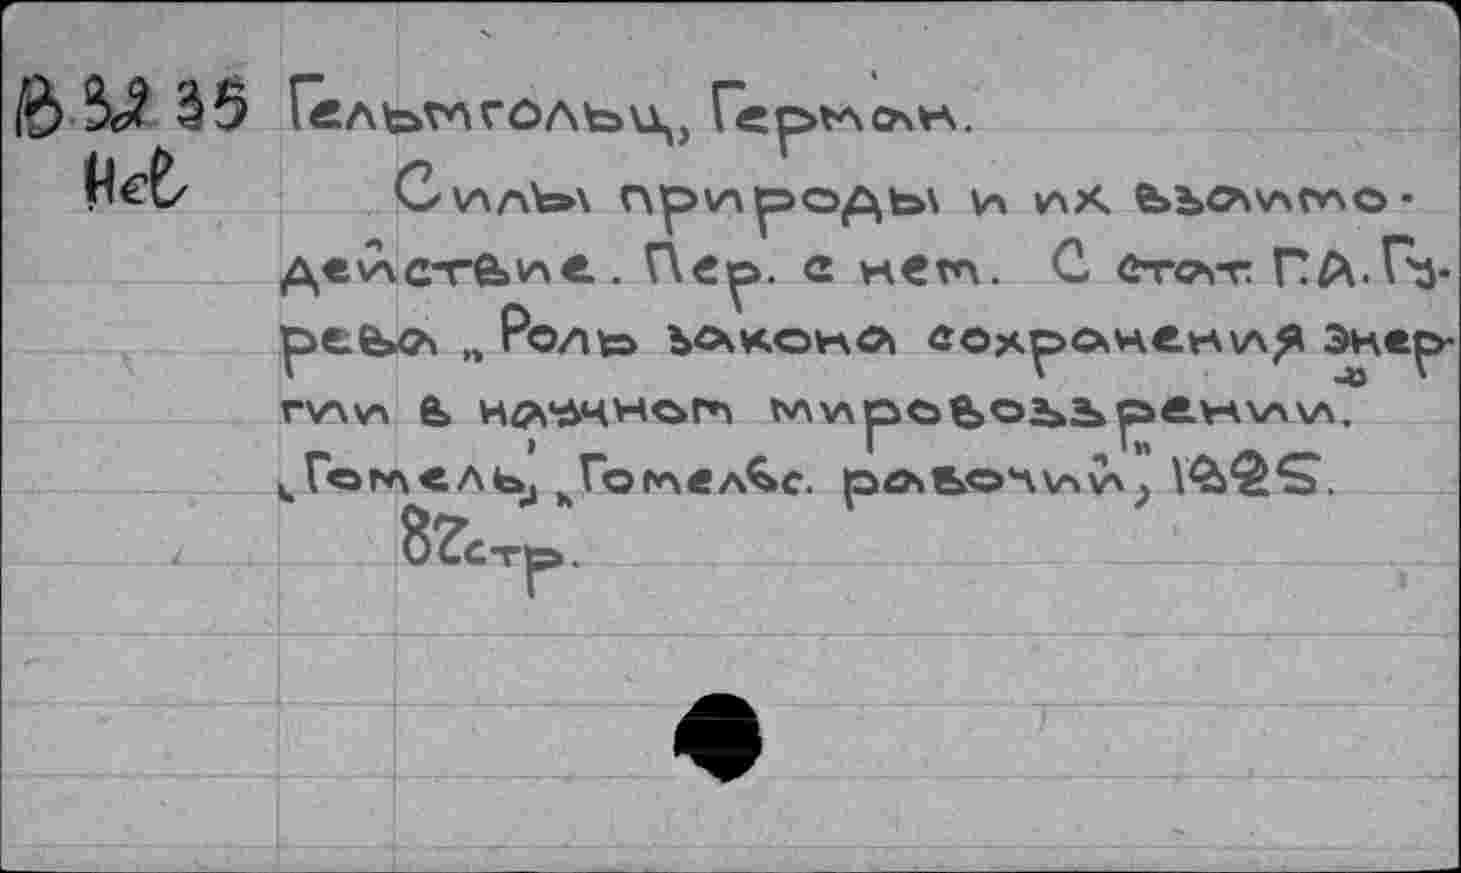 В 32 35 Гельмгольц, Герман.
Hel Силы природы и их взаимо-
действие.. Пер. с нем. С стат. Г.А.Гу-
рева „Роль закона сохранения энер-
гии в научном мировоззрении".
„Гомель", „Гомелвс. рабочий", 1925.
82стр.